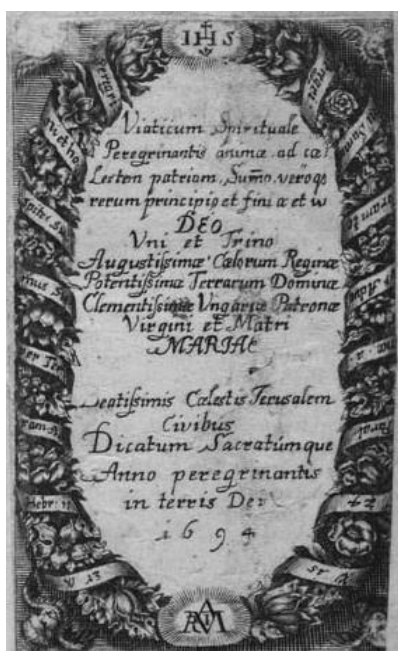 IHS
Viaticum Spirituale
Peregrinantis animæ ad cæ
Lestem patriam, Sum̃o, veroq3
rerum principio et fini α et ω
DEO
Vni et Trino
Augustißimæ Cælorum Reginæ
Potentißimæ Terrarum Dominæ
Clementißimæ Vngariæ Patronæ
Virgini et Matri
MARIAE
Cælestis Jerusalem
Civibus
Dicatum Sacratúmque
Anno peregrinantis
in terris Dei
1694
Hebr: 11